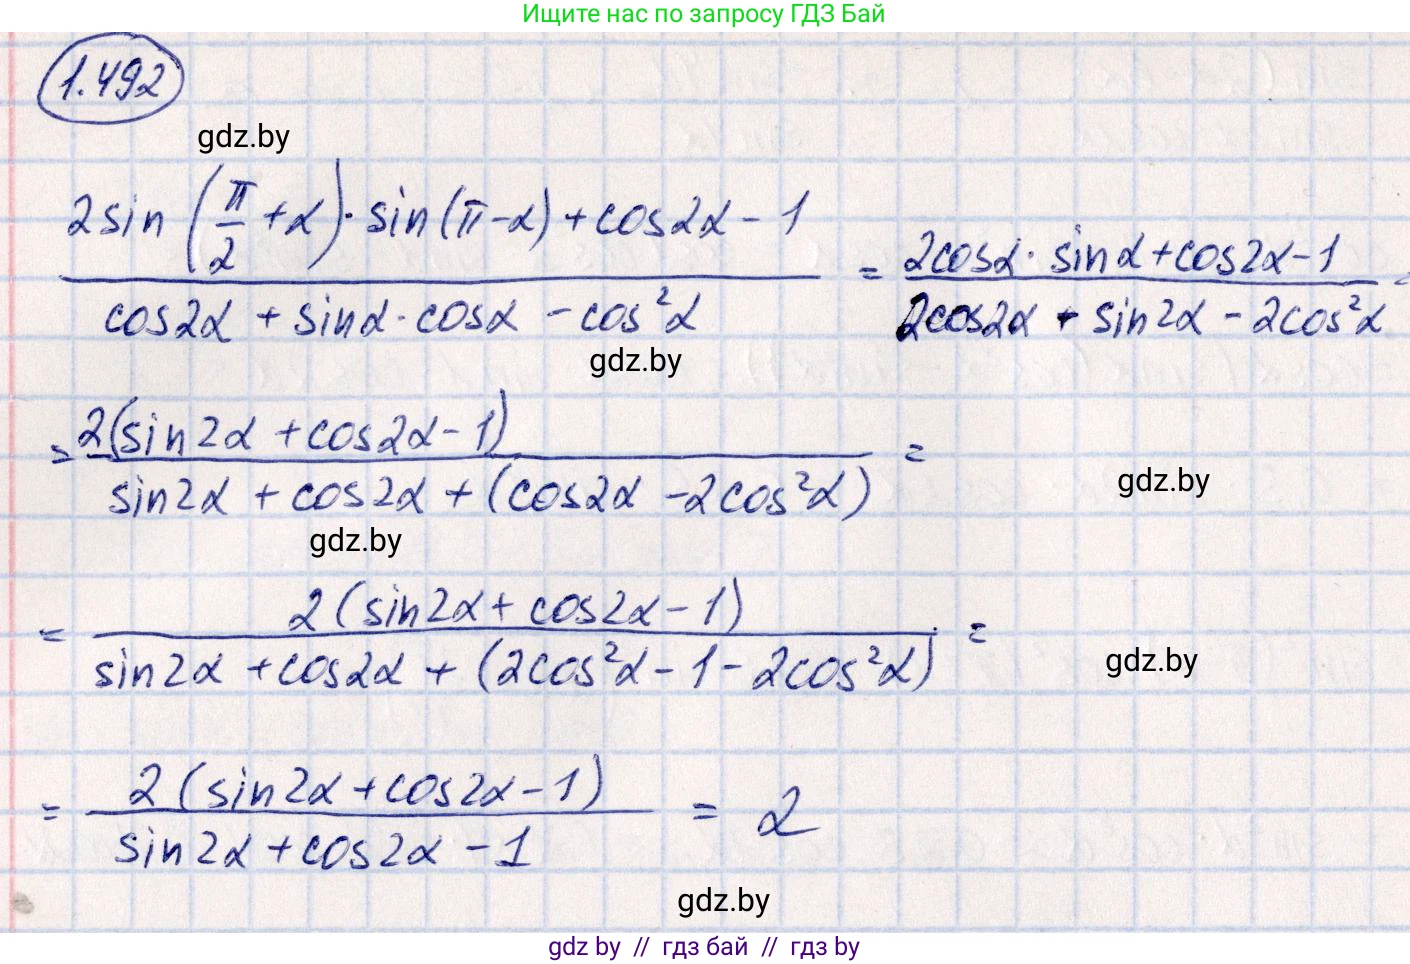 Ищите нас по запросу ГДЗ Бай
1.492
gdz.by
2sin(π/2 + α)·sin(π-α) + cos2α - 1 / cos2α + sinα·cosα - cos²α = 2cosα·sinα + cos2α - 1 / 2cos2α + sin2α - 2cos²α =
gdz.by
= 2(sin2α + cos2α - 1) / sin2α + cos2α + (cos2α - 2cos²α) =
gdz.by
gdz.by
= 2(sin2α + cos2α - 1) / sin2α + cos2α + (2cos²α - 1 - 2cos²α) =
gdz.by
= 2(sin2α + cos2α - 1) / sin2α + cos2α - 1 = 2
gdz.by
gdz by // гдз бай // гдз by